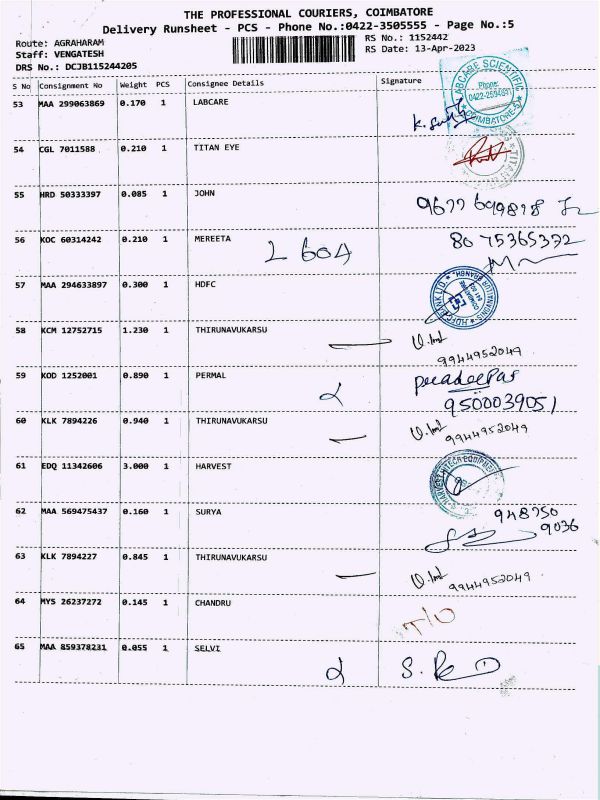 THE PROFESSIONAL COURIERS, COIMBATORE
Delivery Runsheet - PCS - Phone No.:0422-3505555 - Page No.:5
Route: AGRAHARAM RS No.: 1152442
Staff: VENGATESH RS Date: 13-Apr-2023
DRS No.: DCJB115244205
S No Consignment No Weight PCS Consignee Details Signature
53 MAA 299063869 0.170 1 LABCARE
LABCARE SCIENTIFIC
Phone:
COIMBATORE
54 CGL 7011588 0.210 1 TITAN EYE
55 HRD 50333397 0.085 1 JOHN
9677 699878
56 KOC 60314242 0.210 1 MEREETA 80 75365372
L 604
57 MAA 294633897 0.300 1 HDFC
58 KCM 12752715 1.230 1 THIRUNAVUKARSU
9944952049
59 KOD 1252001 0.890 1 PERMAL
9500039051
60 KLK 7894226 0.940 1 THIRUNAVUKARSU
9944952049
61 EDQ 11342606 3.000 1 HARVEST
62 MAA 569475437 0.160 1 SURYA 948750
9036
63 KLK 7894227 0.845 1 THIRUNAVUKARSU
9944952049
64 MYS 26237272 0.145 1 CHANDRU
T/O
65 MAA 859378231 0.055 1 SELVI